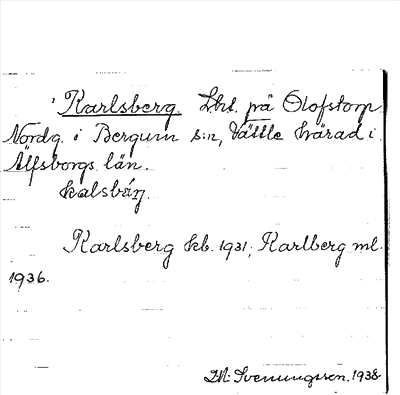 Karlsberg. Lht. på Olofstorp
Nordg. i Bergum s:n, Vättle härad i
Älfsborgs län.
kalsbárj.
Karlsberg kb. 1931, Karlberg ml.
1936.
Svenungsson. 1938